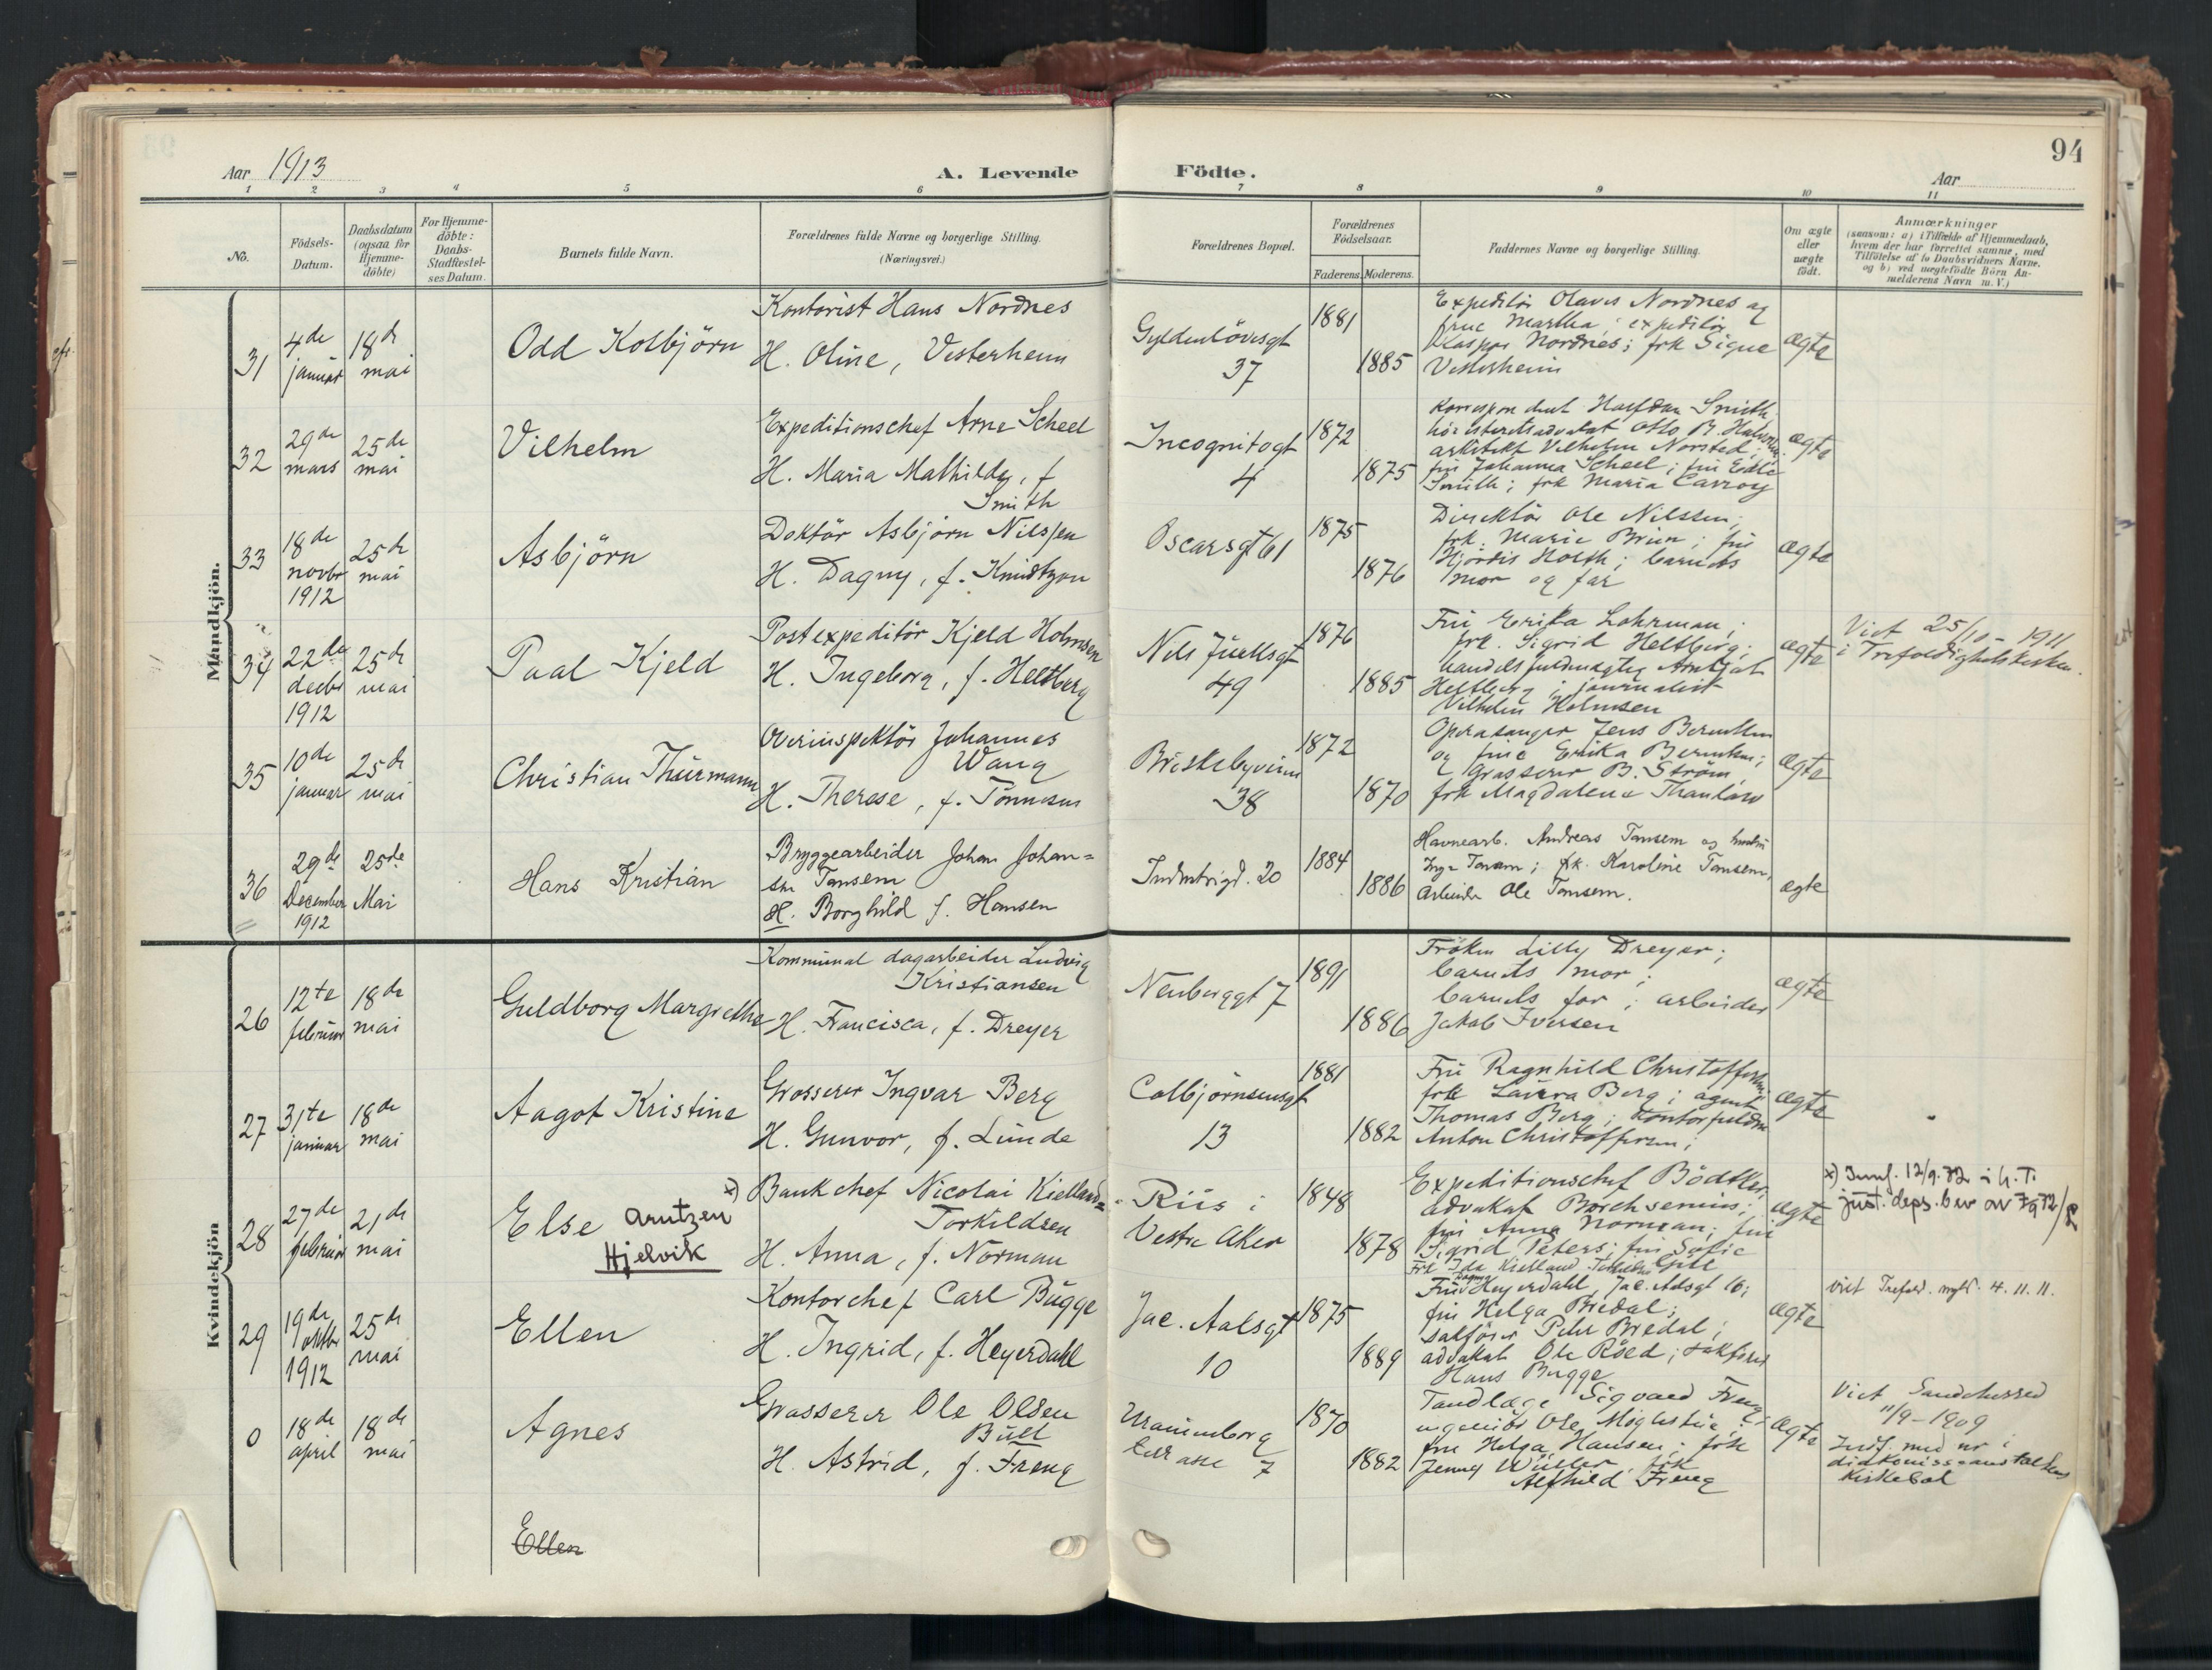 94
Aar 1913
A. Levende Födte.
Aar
1 2 3 4 5 6 7 8 9 10 11
No.
Födsels-
Datum.
Daabsdatum
(ogsaa for
Hjemme-
döbte)
For Hjemme-
döbte:
Daabs-
Stadfæstel-
ses Datum.
Barnets fulde Navn.
Forældrenes fulde Navne og borgerlige Stilling.
(Næringsvei.)
Forældrenes Bopæl.
Forældrenes
Födselsaar.
Faderens. Moderens.
Faddernes Navne og borgerlige Stilling.
Om ægte
eller
uægte
födt.
Anmærkninger
(saasom: a) i Tilfælde af Hjemmedaab,
hvem der har forrettet samme, med
Tilföielse af to Daabsvidners Navne,
og b) ved uægtefödte Börn An-
melderens Navn m. V.)
Mandkjön.
31
4de
januar
18de
mai
Odd Kolbjörn
Kontorist Hans Nordnes
H. Oline, Vesterheim
Gyldenlövesgt
37
1881
1885
Expeditör Olavus Nordnes og
frue Martha; expeditör
Kaspar Nordnes; frk Signe
Vesterheim
ægte
32
29de
mars
25de
mai
Vilhelm
Expeditionschef Arne Scheel
H. Maria Mathilde, f
Smith
Incognitogt
4
1872
1875
Korrespondent Halfdan Smith
höiesteretsadvokat Otto B.
arkitekt Vilhelm Norsted;
fru Johanna Scheel; fru
Smith; frk Maria
ægte
33
18de
novbr
1912
25de
mai
Asbjörn
Doktör Asbjörn Nilssen
H. Dagny, f. Knudtzon
Oscarsgt 61
1875
1876
Direktör Ole Nilssen;
frk. Marie Brun; fru
Hjördis Holth; barnets
mor og far
ægte
34
22de
decbr
1912
25de
mai
Paal Kjeld
Postexpeditör Kjeld Holmsen
H. Ingeborg, f. Heltberg
Nils Juelsgt
49
1876
1885
Fru Erika Lohrman;
frk. Sigrid Heltberg;
handelsfuldmægtig
Heltberg; journalist
Vilhelm Holmsen
ægte
Viet 25/10 - 1911
i Trefoldighetskirken.
35
10de
januar
25de
mai
Christian Thurmann
Overinspektör Johannes
Wang
H. Therese, f. Tönnesen
Briskebyveien
38
1872
1870
Operasanger Jens Berntsen
og frue Erika Berntsen;
Grosserer B. Ström,
frk Magdalene Thaulow
ægte
36
29de
December
1912
25de
Mai
Hans Kristian
Bryggearbeider Johan Johan=
sen Tansem
H. Borghild f. Hansen
Industrigd. 20
1884
1886
Havnearb. Andreas Tansem og hustru
Tansem; frk. Karoline Tansem,
Arbeider Ole Tansem.
ægte
Kvindekjön
26
12te
februar
18de
mai
Guldborg Margrethe
Kommunal dagarbeider Ludvig
Kristiansen
H. Francisca, f. Dreyer
Neuberggt 7
1891
1886
Fröken Lilly Dreyer;
barnets mor;
barnets far; arbeider
Jakob Iversen
ægte
27
31te
januar
18de
mai
Aagot Kristine
Grosserer Ingvar Berg
H. Gunvor, f. Lunde
Colbjörnsensgt
13
1881
1882
Fru Ragnhild Christoffersen
frk Laura Berg; agent
Thomas Berg; kontorfuldm
Anton Christoffersen;
ægte
28
27de
februar
21de
mai
Else Arntzen x)
Hjelvik
Bankchef Nicolai Kielland=
Torkildsen
H. Anna, f. Norman
Riis i
Vestre Aker
1848
1878
Expeditionschef Bödtker,
advokat Borchsenius;
fru Anna Norman; fru
Sigrid Peters; fru Sofie
Frk Ida Kielland Torkildsen
ægte
x) 12/9.72 i h. T.
just. deps. bev av 7/9 72
29
19de
oktbr
1912
25de
mai
Ellen
Kontorchef Carl Bugge
H. Ingrid, f. Heyerdahl
Jac. Aalsgt
10
1875
1889
Fru Dagny Heyerdahl Jac. Aalsgt 16;
fru Helga Bredal;
sakförer Peter Bredal;
advokat Ole Röed; sakförer
Hans Bugge
ægte
viet Trefold. 4. 11. 11.
0
18de
april
18de
mai
Agnes
Grosserer Ole Olsen
Bull
H. Astrid, f. Freng
Uranienborg
terrasse 7
1870
1882
Tandlæge Sigvard Freng
ingeniör Ole
fru Helga Hansen; frk
Jenny Wüller, frk
Alfhild Freng
ægte
Viet Sandehered
11/9 - 1909
Indf. med nr i
diakonisseanstaltens
Kirkebok
Ellen